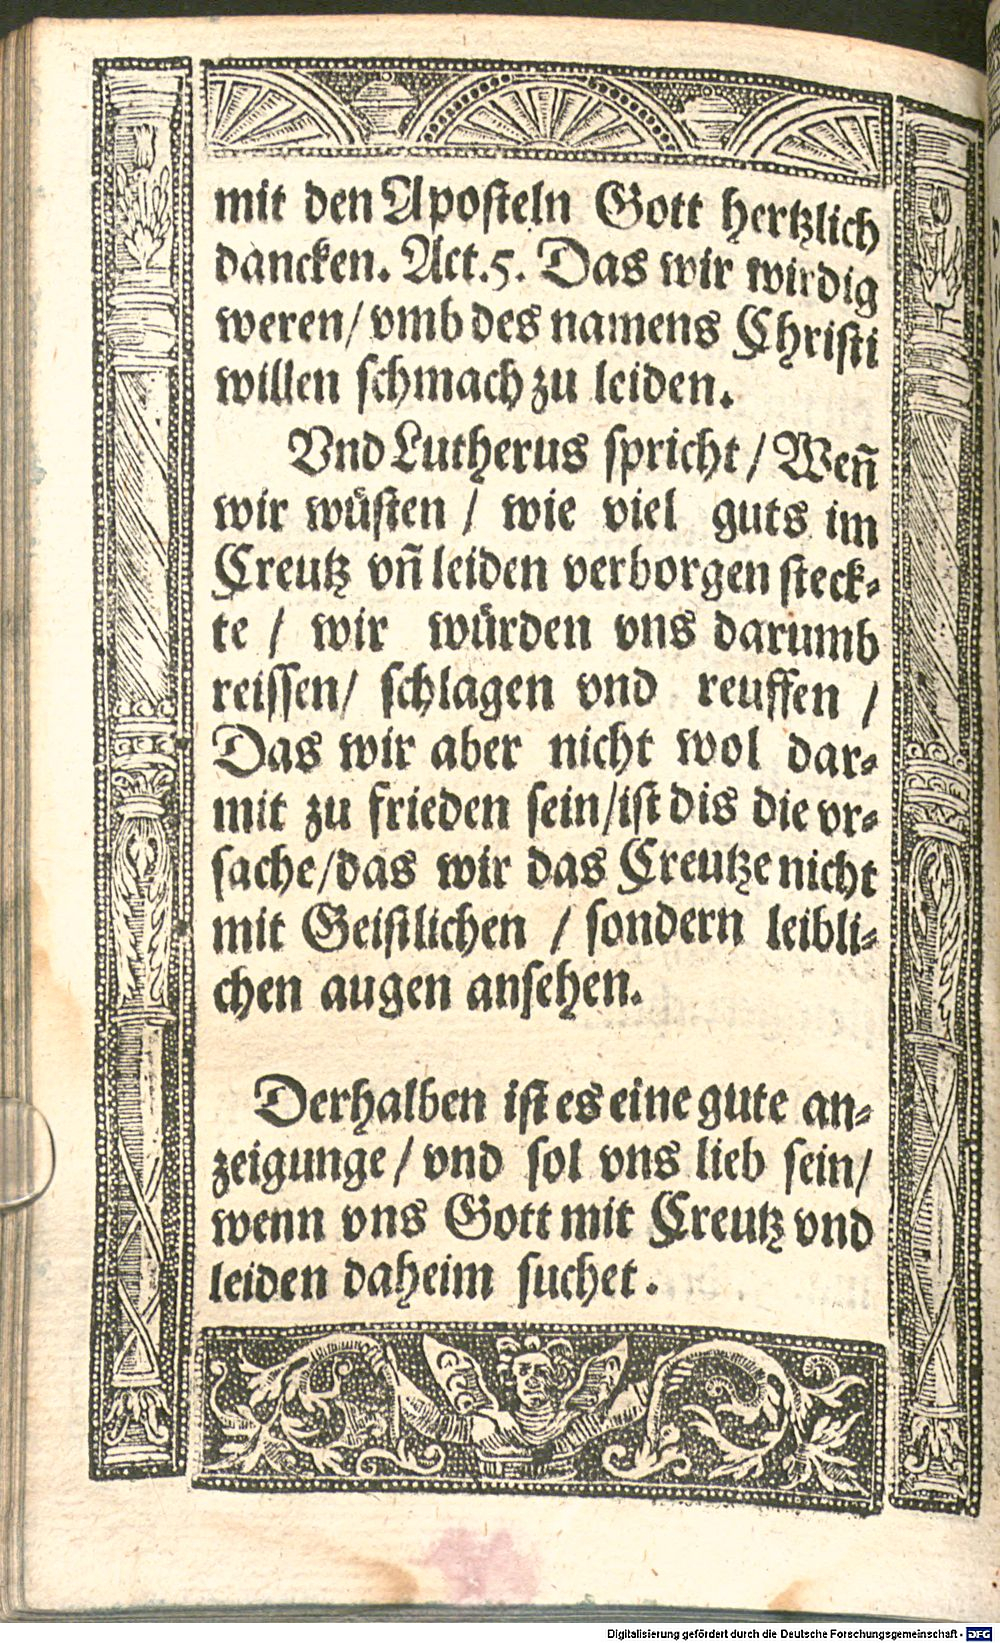 mit den Aposteln Gott hertzlich
dancken. Act.5. Das wir wirdig
weren/ vmb des namens Christi
willen schmach zu leiden.
Vnd Lutherus spricht / Weñ
wir wüsten / wie viel guts im
Creutz vñ leiden verborgen steck-
te / wir würden vns darumb
reissen/ schlagen vnd reuffen /
Das wir aber nicht wol dar-
mit zu frieden sein/ist dis die vr-
sache/das wir das Creutze nicht
mit Geistlichen / sondern leibli-
chen augen ansehen.
Derhalben ist es eine gute an-
zeigunge / vnd sol vns lieb sein/
wenn vns Gott mit Creutz vnd
leiden daheim suchet.
Digitalisierung gefördert durch die Deutsche Forschungsgemeinschaft - DFG